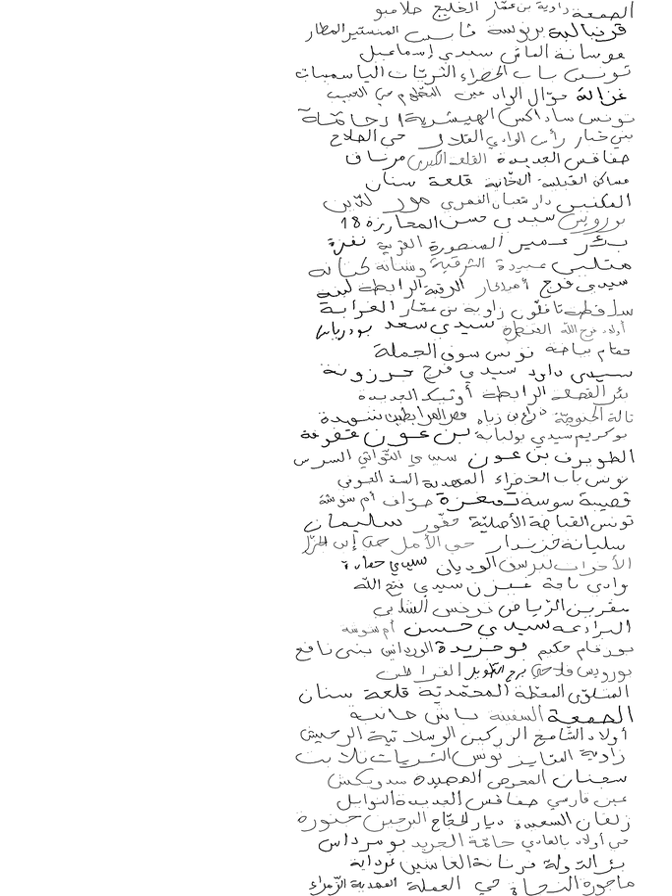 الجمعة زاوية بن عمار الخليج صلامبو
قرنبالية برنوسة قابس المنستير المطار
سوسانة الفاش سيدي إسماعيل
تونس باب الخضراء الثريات الياسمينات
غزالة حوّال الواد عين حي الحبيب
تونس ساداكس الهيشرية الرحامنة
بني خيار رأس الوادي القلال حي الصلاح
صفاقس الجديدة القلعة الكبرى مرناق
مساكن القبلية الدخانية قلعة سنان
المكنين دار شعبان الفهري
بورويس سيدي حسن المحارزة 18
بئر المنصورة الغربية نفزة
منتلين عميرة الشرقية وشتاتة كتانة
سيدي فرج الرقبة الرابطة لبنة
ساقطة تافلون زاوية بن عمار الغرابة
أولاد فرج الله القنطرة سيدي سعد بودرياس
حمام بياضة تونس سوق الجملة
سيدي داود سيدي فرج حرزونة
بئر القصعة الرابطة أوتيك الجديدة
تالة الحنوشة ذراع بن زياد قصر المرابطين شهدة
بوكريم سيدي بولبابة بن عون قفونة
الطويرف بن عون سيدي التواتي السرس
تونس باب الخضراء المهدية السد الجوفي
قصيبة سوسة تمغزة حوّاف أم سوشة
تونس القباضة الأصلية حفوز سليمان
سليانة خزندار حي الأمل
الأحواب لبرسق الوديان سيدي حمادة
وادي باجة سيدي فتح الله
مقرين الرياض تونس الشابي
البرادعة سيدي حسن أم سوشة
بورقام حكيم بوجريدة الورداني بني نافع
بورويس فلاحي برج الطويل القراطن
المتلوي المحطة المحمدية قلعة سنان
الجمعة السفينة باش حانبة
أولاد الشامخ الزركين الوسلاتية الرحيش
زاوية تونس الشريات تلابت
سجنان المعرض العصيدة سدويكش
عين فارسي صفاقس الجديدة التوابل
زلفان السعيدة ديار الحجاج البرجين خنورة
حي أولاد بالهادي حامة الجريد بومرداس
بئر الدولة فرنانة العاشين غرداية
ماجورة النجاة حي العملة المهدية الزهراء